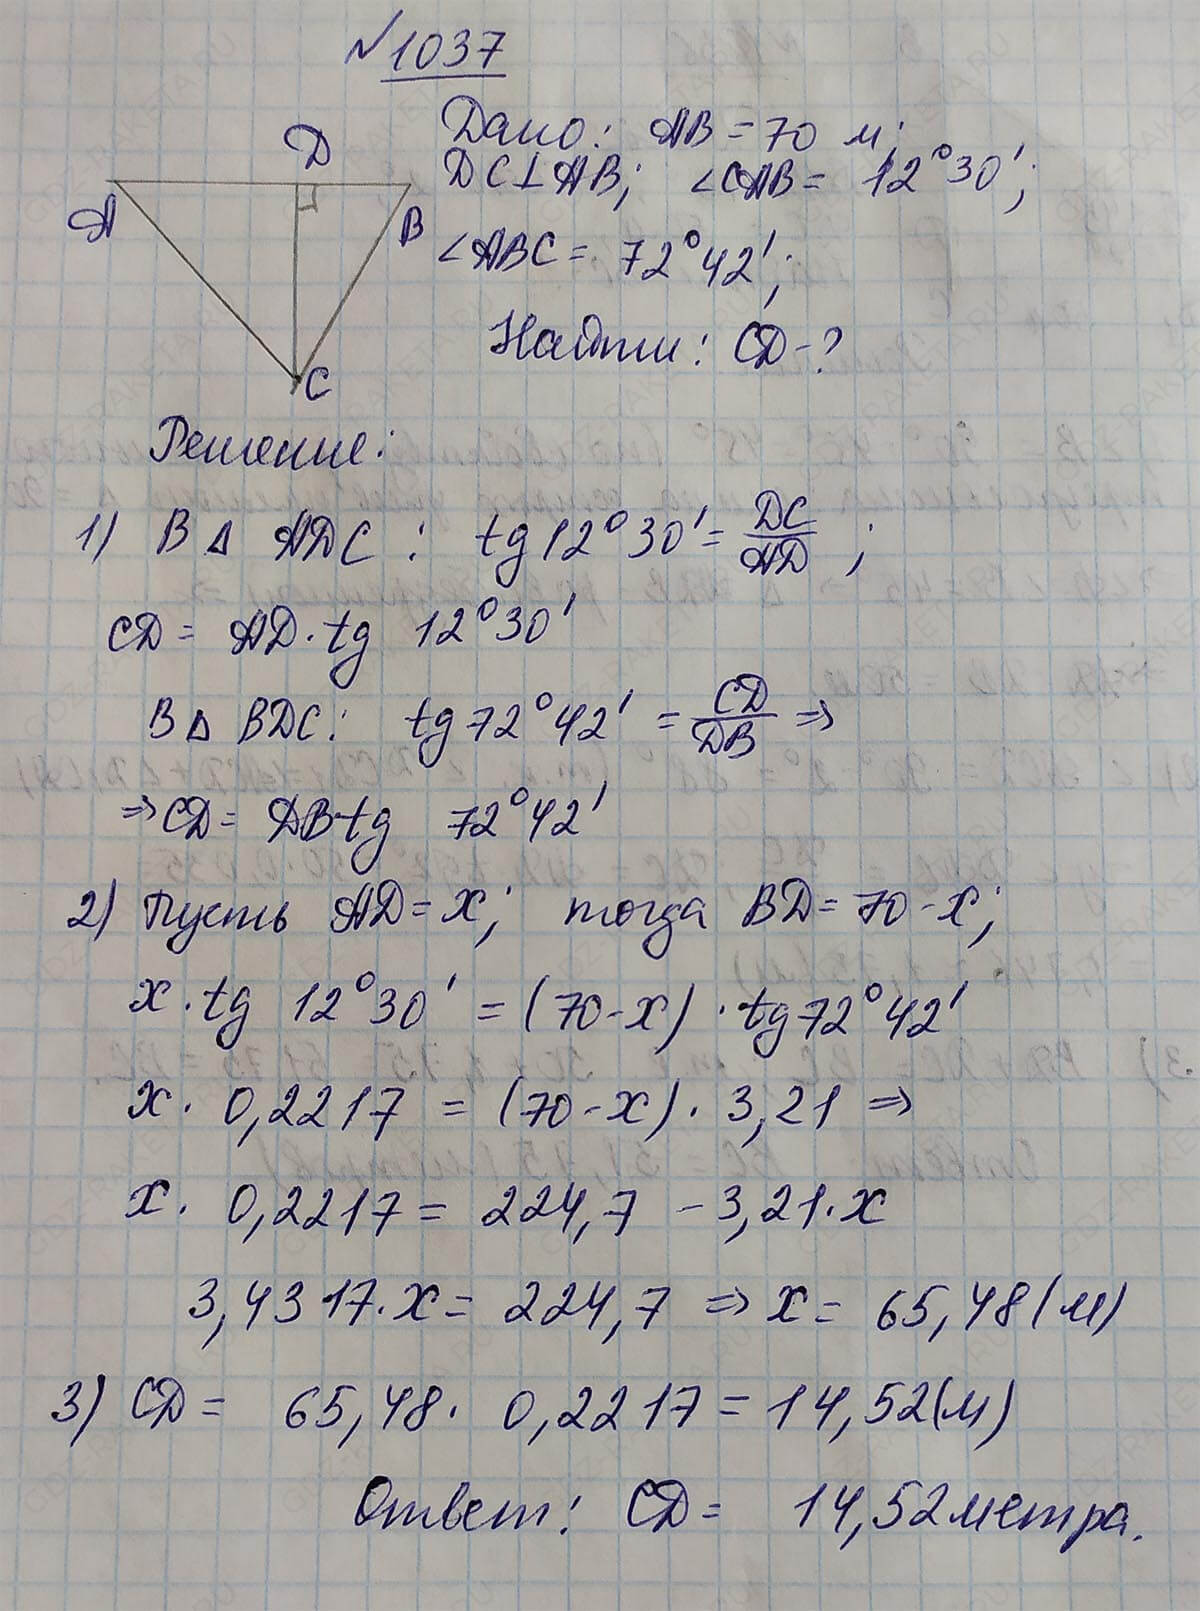 №1037
Дано: AB = 70 м;
DC⊥AB; ∠CAB = 12°30';
∠ABC = 72°42';
Найти: CD-?
D
A
B
C
Решение:
1) В △ ADC : tg 12°30' = DC/AD ;
CD = AD·tg 12°30'
В △ BDC: tg 72°42' = CD/DB ⇒
⇒ CD = DB·tg 72°42'
2) Пусть AD = x; тогда BD = 70-x;
x·tg 12°30' = (70-x)·tg 72°42'
x· 0,2217 = (70-x)· 3,21 ⇒
x· 0,2217 = 224,7 - 3,21·x
3,4317·x = 224,7 ⇒ x = 65,48(м)
3) CD = 65,48· 0,2217 = 14,52(м)
Ответ: CD = 14,52 метра.